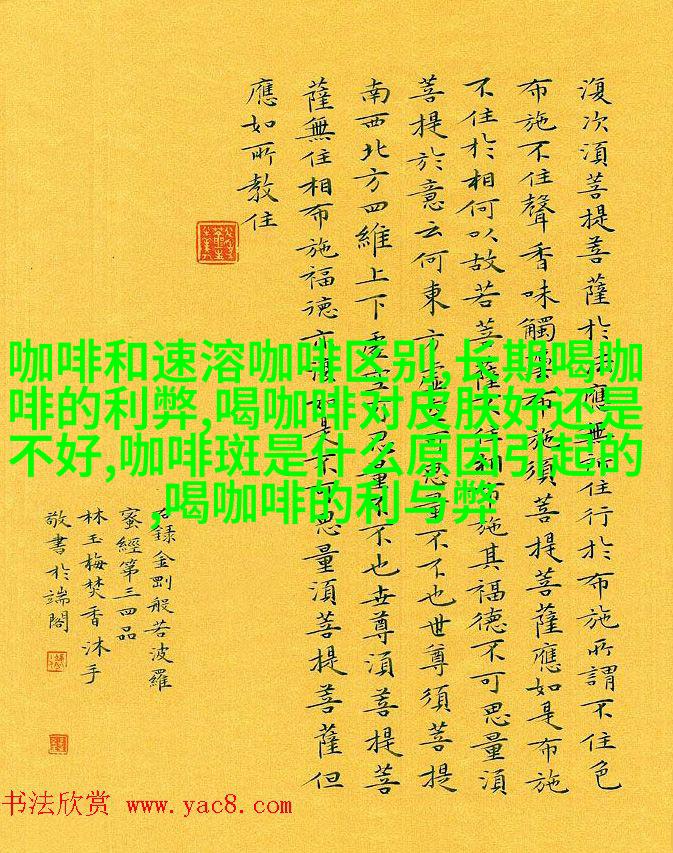 復次須菩提菩薩於法應無所住行於布施所謂不住色
布施不住聲香味觸法布施須菩提菩薩應如是布施
不住於相何以故若菩薩不住相布施其福德不可思量須
菩提於意云何東方虛空可思量不不也世尊須菩提
南西北方四維上下虛空可思量不不也世尊須菩提菩
薩無住相布施福德亦復如是不可思量須菩提菩薩但
應如所教住
右錄金剛般若波羅
蜜經第三四品
林玉梅焚香沐手
敬書於端閣
咖啡和速溶咖啡区别,长期喝咖
啡的利弊,喝咖啡对皮肤好还是
不好,咖啡斑是什么原因引起的
,喝咖啡的利与弊
书法欣赏 www.yac8.com